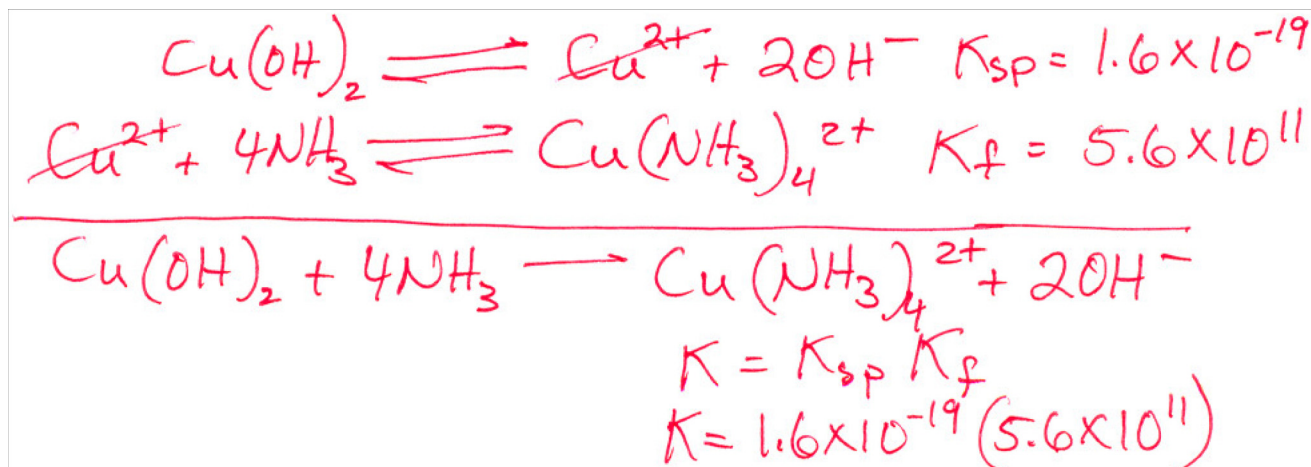 Cu(OH)₂ ⇌ Cu²⁺ + 2OH⁻ Ksp = 1.6×10⁻¹⁹
Cu²⁺ + 4NH₃ ⇌ Cu(NH₃)₄²⁺ Kf = 5.6×10¹¹
Cu(OH)₂ + 4NH₃ — Cu(NH₃)₄²⁺ + 2OH⁻
K = Ksp Kf
K = 1.6×10⁻¹⁹ (5.6×10¹¹)